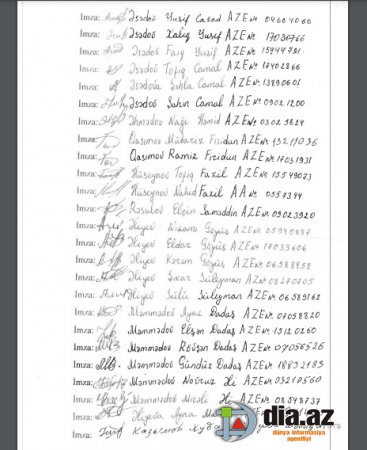 İmza: Əsədov Yusif Camad AZE № 04684068
İmza: Əsədov Xaliq Yusif AZE № 17030766
İmza: Əsədov Faiq Yusif AZE № 15444791
İmza: Əsədov Tofiq Camal AZE № 17402866
İmza: Əsədova Səhla Camal AZE № 13890601
İmza: Əsədov Şahin Camal AZE № 09021200
İmza: Əhmədov Nağı Həmid AZE № 03023824
İmza: Qasımov Mübariz Firidun AZE № 13211036
İmza: Qasımov Ramiz Firidun AZE № 17051931
İmza: Hüseynov Tofiq Fazil AZE № 15549023
İmza: Hüseynov Vahid Fazil AA № 0557344
İmza: Rəsulov Elçin Səməddin AZE № 09023920
İmza: Əliyev Nizami Göyüş AZE № 05940887
İmza: Əliyev Eldar Göyüş AZE № 17033606
İmza: Əliyev Kərəm Göyüş AZE № 06588458
İmza: Əliyev Süleyman AZE № 08270705
İmza: Əliyev Süleyman AZE № 06589162
İmza: Məmmədov Ayaz Dadaş AZE № 07058820
İmza: Məmmədov Elşən Dadaş AZE № 15120260
İmza: Məmmədov Rövşən Dadaş AZE № 07056526
İmza: Məmmədov Gündüz Dadaş AZE № 18832183
İmza: Məmmədov Novruz Əli AZE № 03210560
İmza: Məmmədov Əli AZE № 08548737
İmza: Əliyeva
İmza: Казымов
dia.az
dünya informasiya
agentliyi